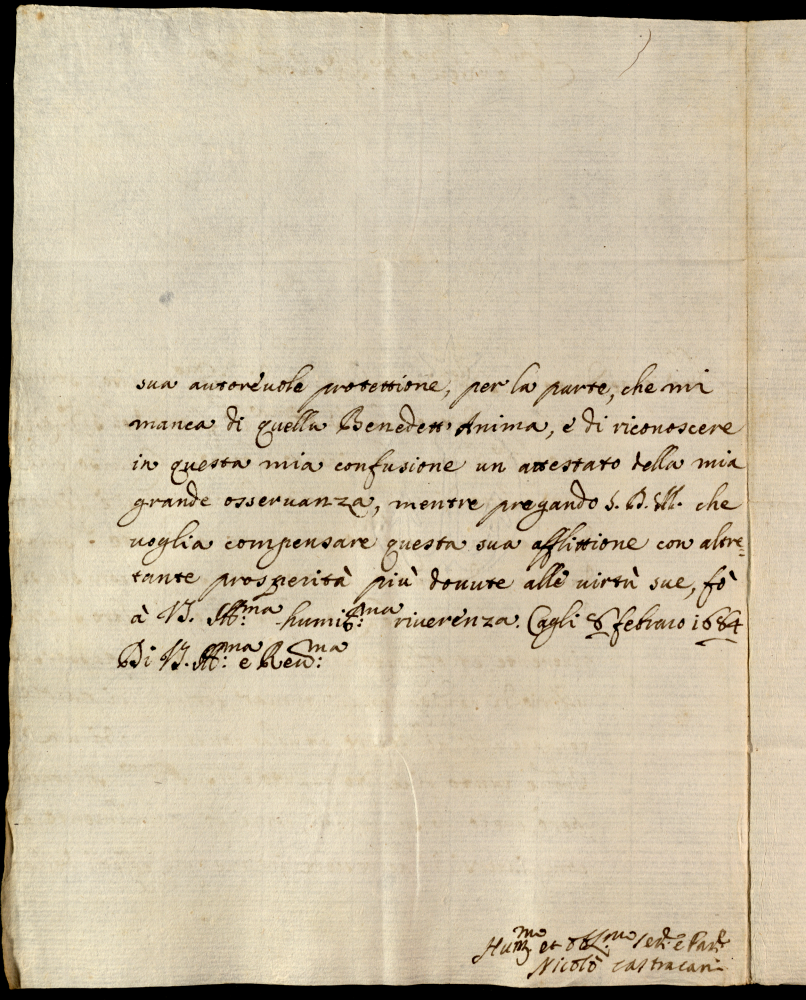 sua autoreuole protettione, per la parte, che mi
manca di quella Benedett' Anima, e di riconoscere
in questa mia confusione un attestato della mia
grande osseruanza, mentre pregando S. D. M. che
uoglia compensare questa sua afflittione con altre=
tante prosperità più douute alle uirtù sue, fò
à V. Ill:ma humil:ma riuerenza. Cagli 8 febraio 1684
Di V. Ill:ma e Reu:ma
Hum:mo et obl:mo Ser:
Nicolò Castracani